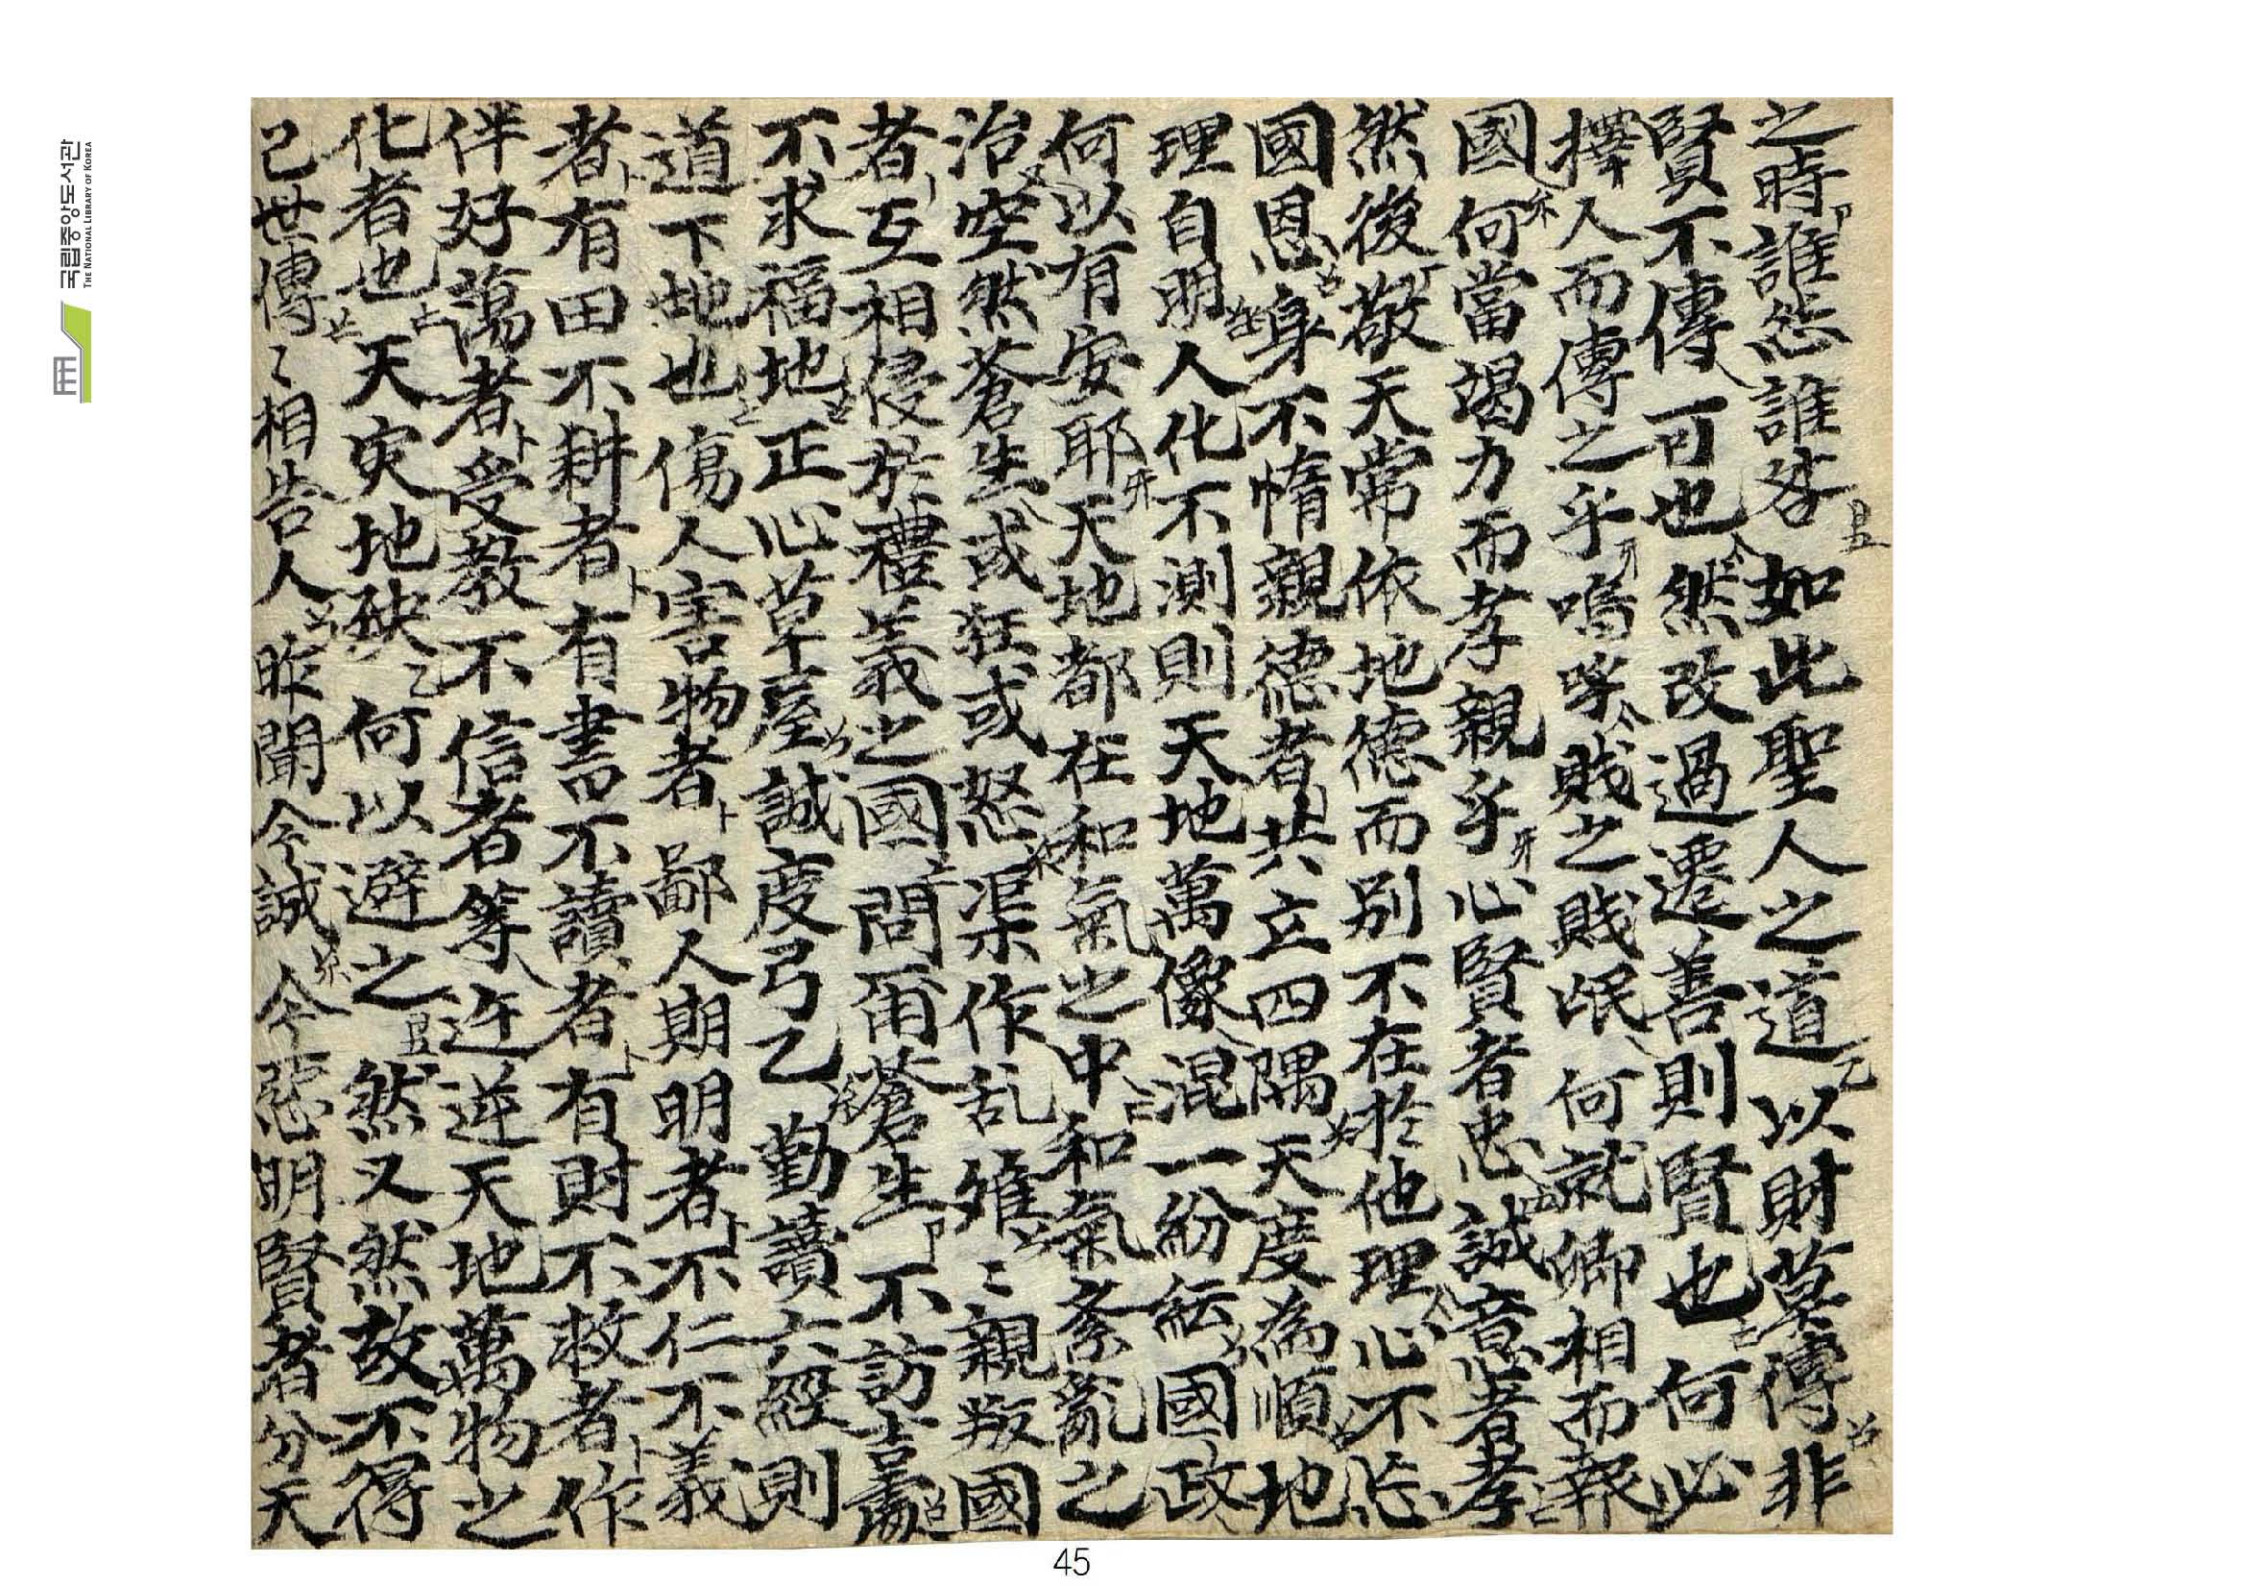 之時卩誰怨誰咎旦五如此聖人之道乙以財莫傳
非
賢不傳可也然改過遷善則賢也何必
擇人而傳之乎牙嗚呼賤之賤氓何就卿相而報
國何當竭力而孝親乎牙心賢者忠誠意者孝
然後敬天常依地德而別不在於他理心不忘
國恩身不惰親德者共立四隅天度為順地
理自明人化不測則天地萬像混一紛紜國政
何以有安耶牙天地都在和氣之中和氣紊亂之
治空然蒼生或狂或怒渠作乱雖〻親叛國
者互相侵於禮義之國問爾蒼生卩不訪吉處
不求福地正心草屋誠度弓乙勤讀六經則
道下地也傷人害物者卜鄙人期明者卜不仁不義
者卜有田不耕者卜有書不讀者卜有財不救者卜作
伴好蕩者卜受教不信者等迕逆天地萬物之
化者也天灾地殃乙何以避之旦五然又然故不得
已世傳〻相告人昨聞今誠今惡明賢者分天
국립중앙도서관
THE NATIONAL LIBRARY OF KOREA
45